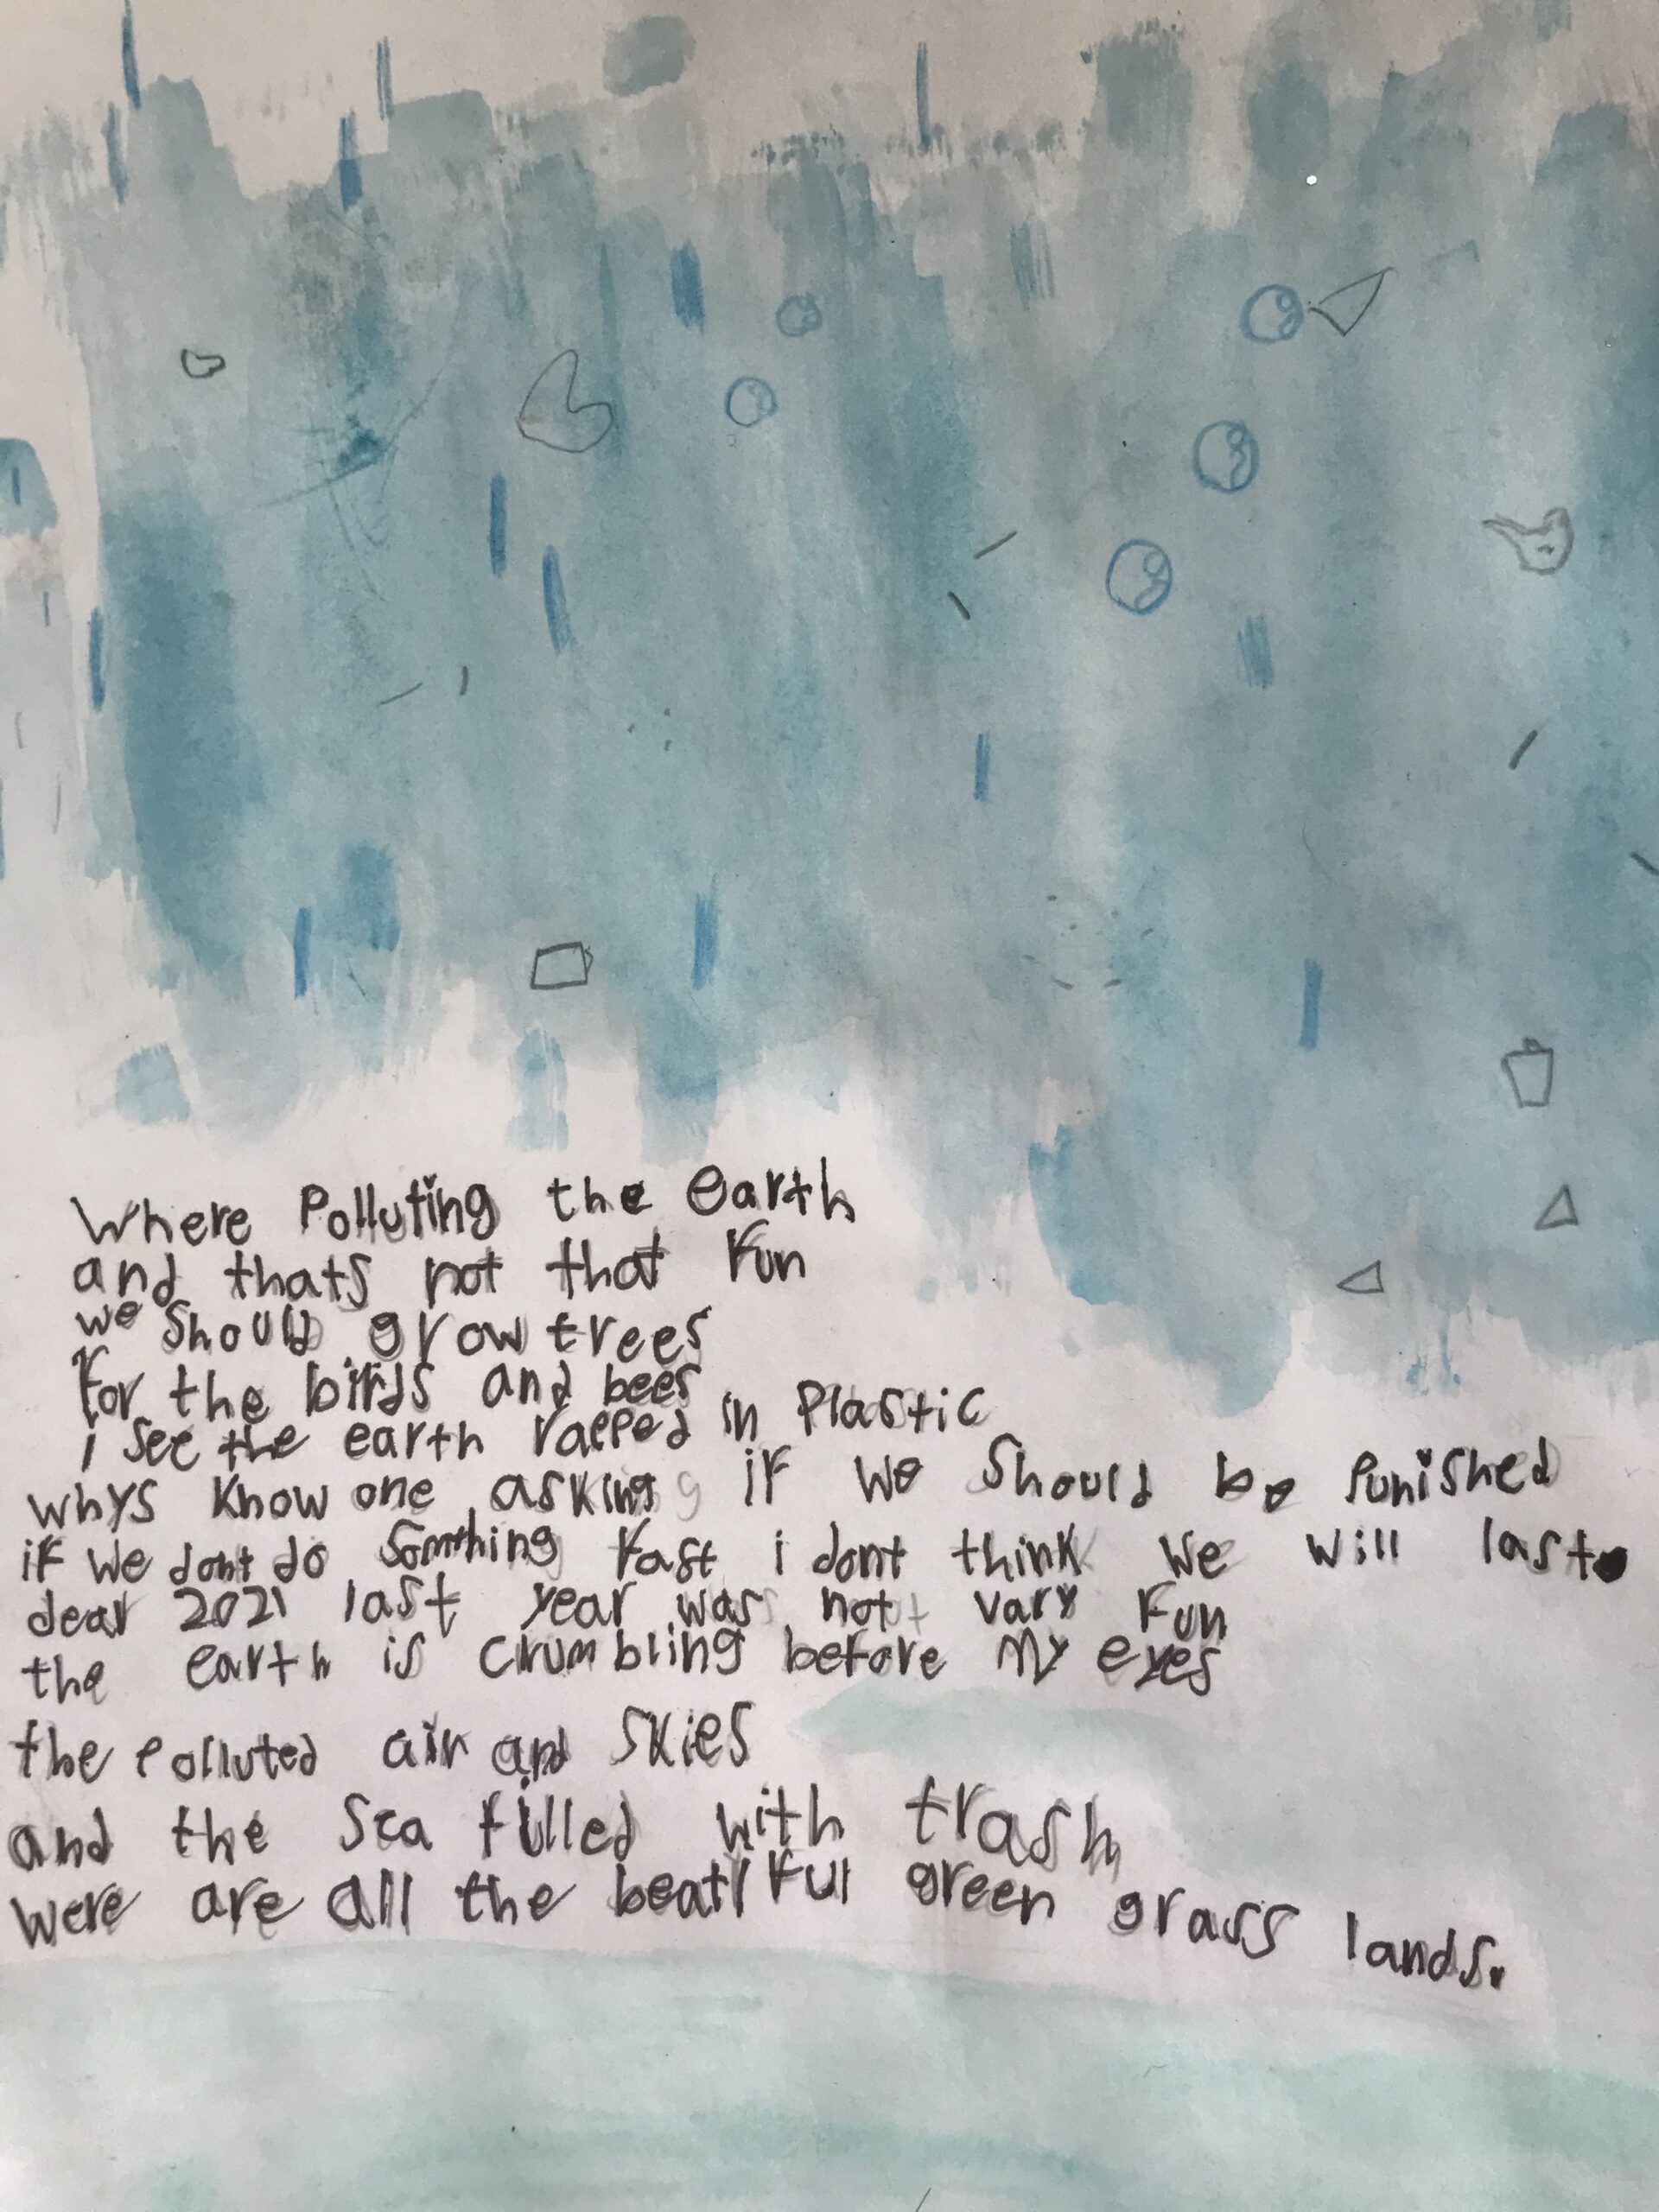 Where Polluting the earth
and thats not that Fun
we Should grow trees
For the birds and bees
i See the earth rapped in Plastic
whys Know one asking if we Should be Punished
if we dont do Somthing Fast i dont think We Will last.
dear 2021 last year was not vary Fun
the earth is crumbling before My eyes
the Polluted air and SKies
and the Sea filled with trash
Were are all the beatiFul green grass lands.